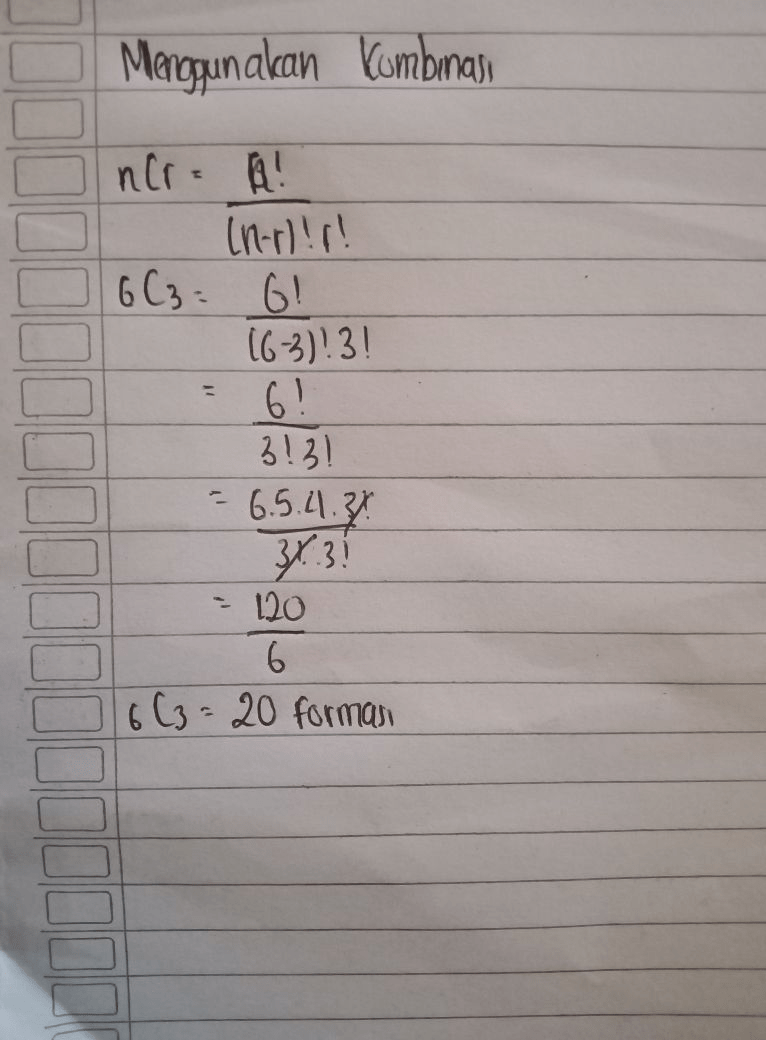 Menggunakan Kombinasi
nCr = n!
(n-r)! r!
6C3 = 6!
(6-3)! 3!
= 6!
3! 3!
= 6.5.4.3!
3!.3!
= 120
6
6C3 = 20 formasi